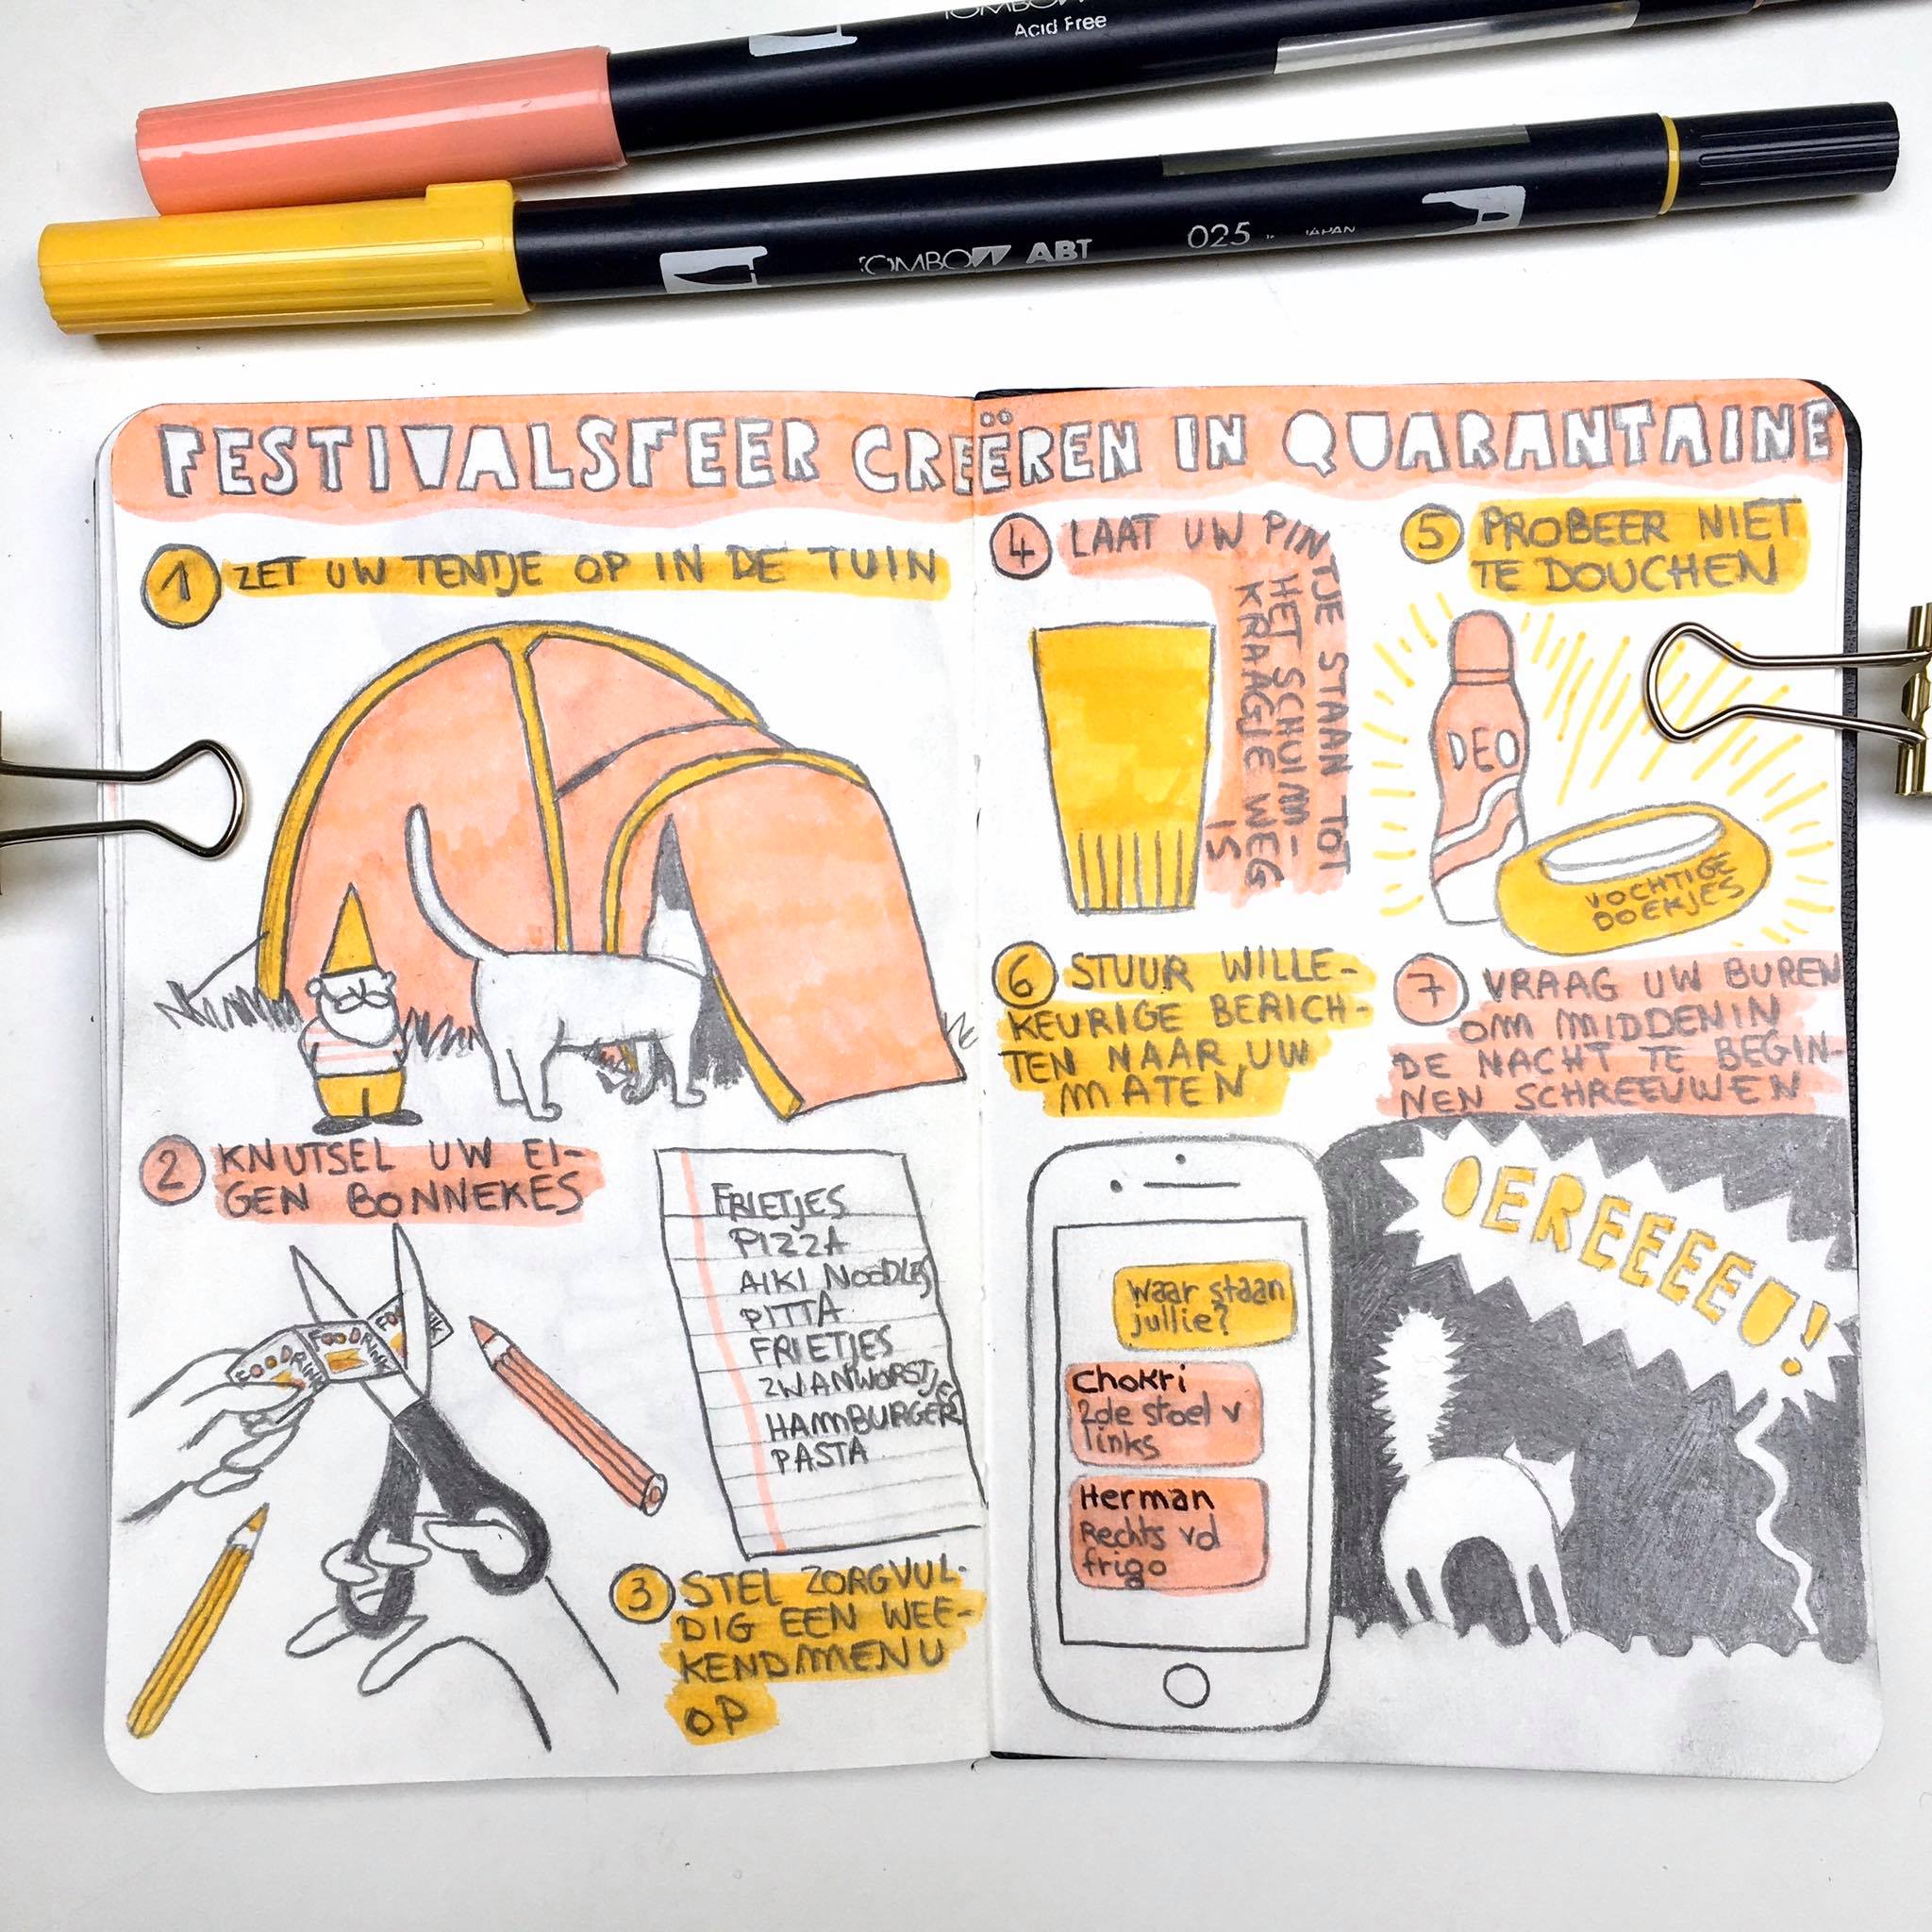 Acid Free
TOMBOW ABT
025
JAPAN
FESTIVALSFEER CREËREN IN QUARANTAINE
1 ZET UW TENTJE OP IN DE TUIN
2 KNUTSEL UW EI-
GEN BONNEKES
FRIETJES
PIZZA
AIKI NOODLES
PITTA
FRIETJES
ZWANWORSTJES
HAMBURGER
PASTA
3 STEL ZORGVUL-
DIG EEN WEE-
KENDMENU
OP
4 LAAT UW PINTJE STAAN TOT
HET SCHUIM-
KRAAGJE WEG
IS
5 PROBEER NIET
TE DOUCHEN
DEO
VOCHTIGE
DOEKJES
6 STUUR WILLE-
KEURIGE BERICH-
TEN NAAR UW
MATEN
Waar staan
jullie?
Chokri
2de stoel v
links
Herman
Rechts vd
frigo
7 VRAAG UW BUREN
OM MIDDENIN
DE NACHT TE BEGIN-
NEN SCHREEUWEN
OEREEEEU!